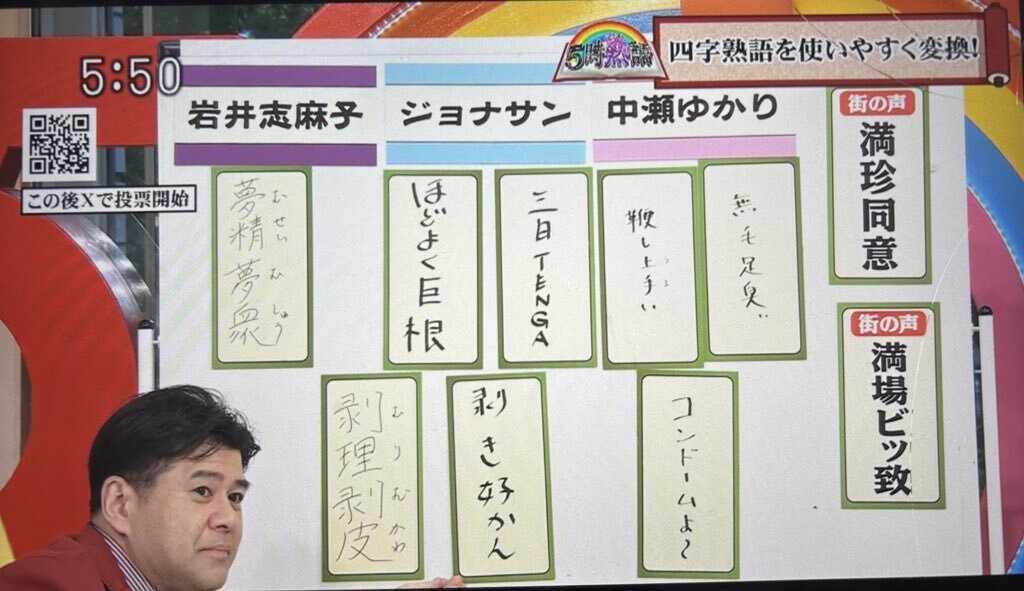 5:50
5時熟語
四字熟語を使いやすく変換!
この後Xで投票開始
岩井志麻子
ジョナサン
中瀬ゆかり
夢精夢衆
むせいむしゅう
ほどよく巨根
三日TENGA
鞭し上手い
うま
無毛足臭
街の声
満珍同意
剥理剥皮
むりむかわ
剥き好かん
コンドームよ〜
街の声
満場ビッ致